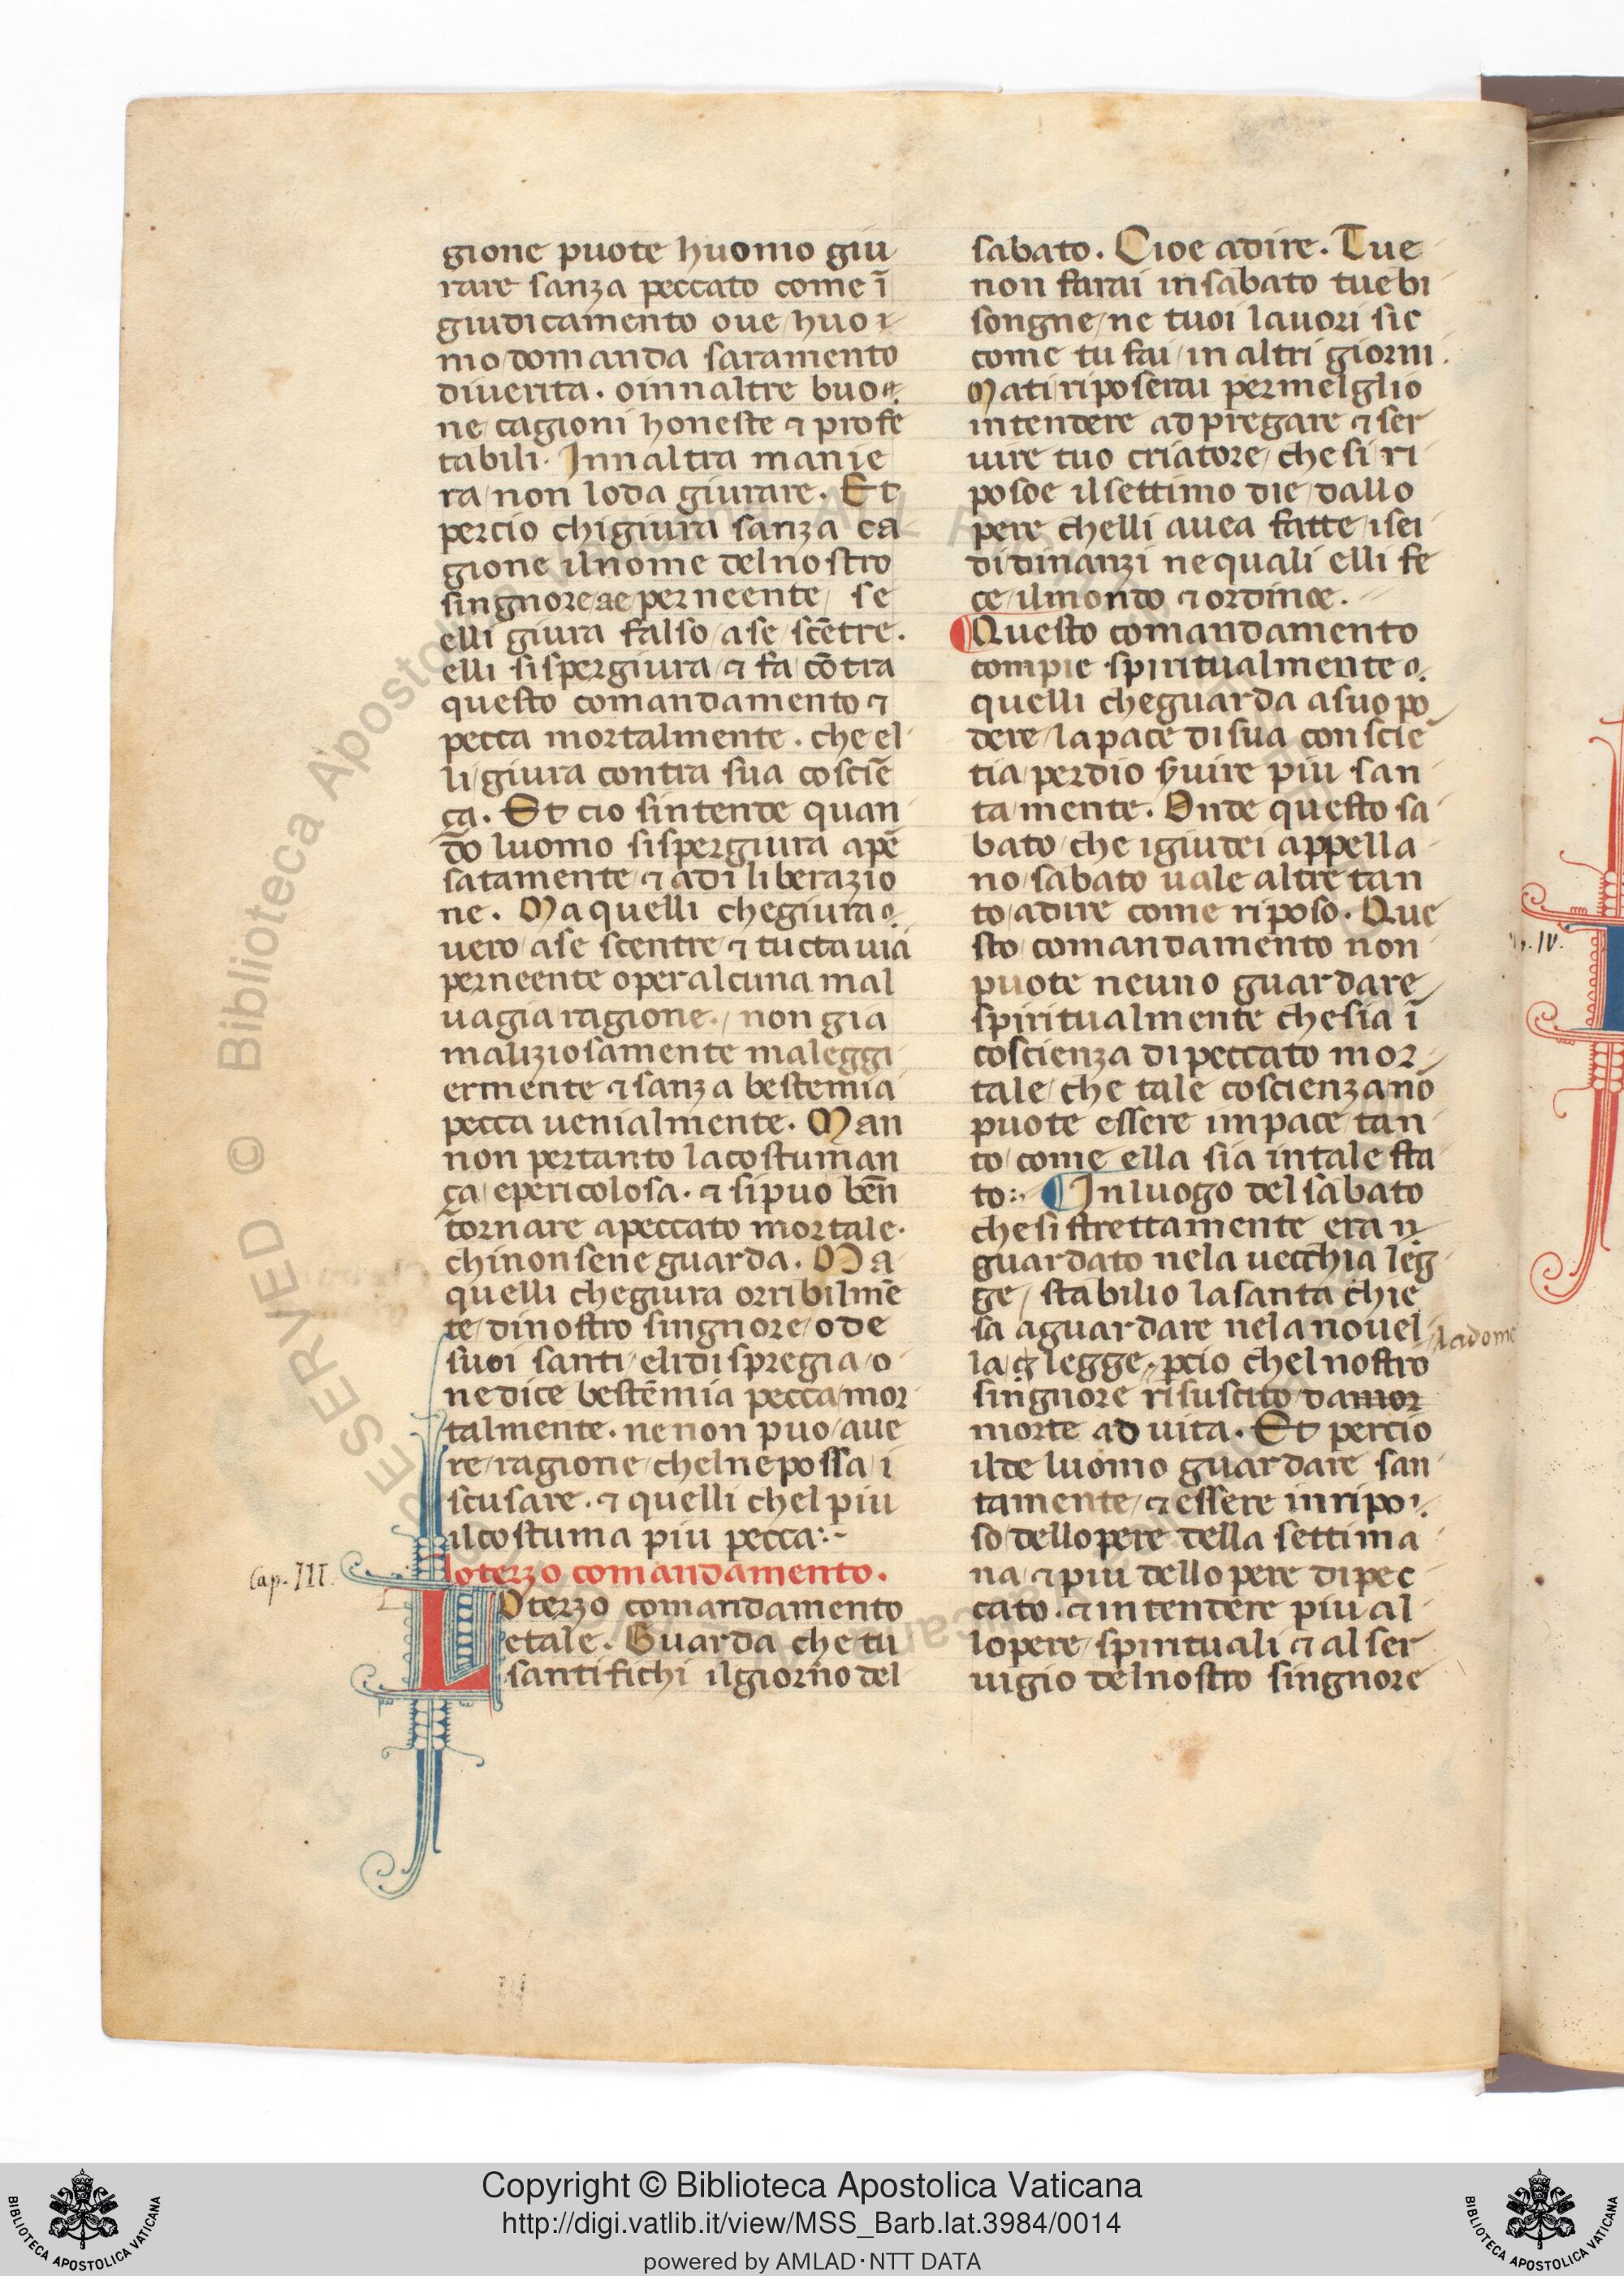 gione puote huomo giu
rare sanza peccato come ī
giudicamento oue huo
mo domanda saramento
diuerita. oinnaltre buo
ne cagioni honeste ⁊ profe
tabili. Innaltra manie
ra non loda giurare. Et
percio chigiura sanza ca
gione ilnome delnostro
singnore ae perneente se
elli giura falso ase scētre.
elli sispergiura ⁊ fa cōtra
questo comandamento ⁊
pecca mortalmente. che el
li giura contra sua cosciē
ça. Et cio sintende quan
do luomo sispergiura apē
satamente ⁊ adiliberazio
ne. Ma quelli chegiura
uero ase scentre ⁊ tuctauia
perneente operalcuna mal
uagia ragione. non gia
maliziosamente maleggi
ermente ⁊ sanza bestemia
pecca uenialmente. Man
non pertanto lacostuman
ça epericolosa. ⁊ sipuo bēn
tornare apeccato mortale.
chinonsene guarda. Ma
quelli chegiura orribilmē
te dinostro singnore ode
suoi santi elidispregia o
nedice bestēmia pecca mor
talmente. nenon puo aue
re ragione chelnepossa i
scusare. ⁊ quelli chel piu
ilcostuma piu pecca:-
loterzo comandamento.
Cap. III.
LOterzo comandamento
etale. Guarda che tu
santifichi ilgiorno del
sabato. Cioe adire. Tue
non farai insabato tuebi
songne ne tuoi lauori sie
come tu fai in altri giorni.
Matiriposerau permelglio
intendere adpregare ⁊ ser
uire tuo criatore chesi ri
posoe ilsettimo die dallo
pere chelli auea fatte isei
didinanzi nequali elli fe
ce ilmondo ⁊ ordinoe.
Questo comandamento
compie spiritualmente
quelli cheguarda asuo po
dere lapace disua conscie
tia perdio ẜuire piu san
tamente. Onde questo sa
bato che igiudei appella
no sabato uale altre tan
to adire come riposo. Que
sto comandamento non
puote neuno guardare
spiritualmente chesia ī
coscienza dipeccato mor
tale che tale coscienza nō
puote essere impace tan
to come ella sia intale sta
to:. Inluogo delsabato
chesi strettamente eran
guardato nela uecchia leg
ge stabilio lasanta chie
sa aguardare nelanouel
ladome
la legge. ꝑcio chelnostro
singnore risuscito damor
morte ad uita. Et percio
ilde luomo guardare san
tamente ⁊ essere inripo
so dellopere della settima
na ⁊ piu dellopere dipec
cato. ⁊ intendere piu al
lopere spirituali ⁊ al ser
uigio delnostro singnore
IV.
Copyright © Biblioteca Apostolica Vaticana
http://digi.vatlib.it/view/MSS_Barb.lat.3984/0014
powered by AMLAD·NTT DATA
BIBLIOTECA APOSTOLICA VATICANA
BIBLIOTECA APOSTOLICA VATICANA